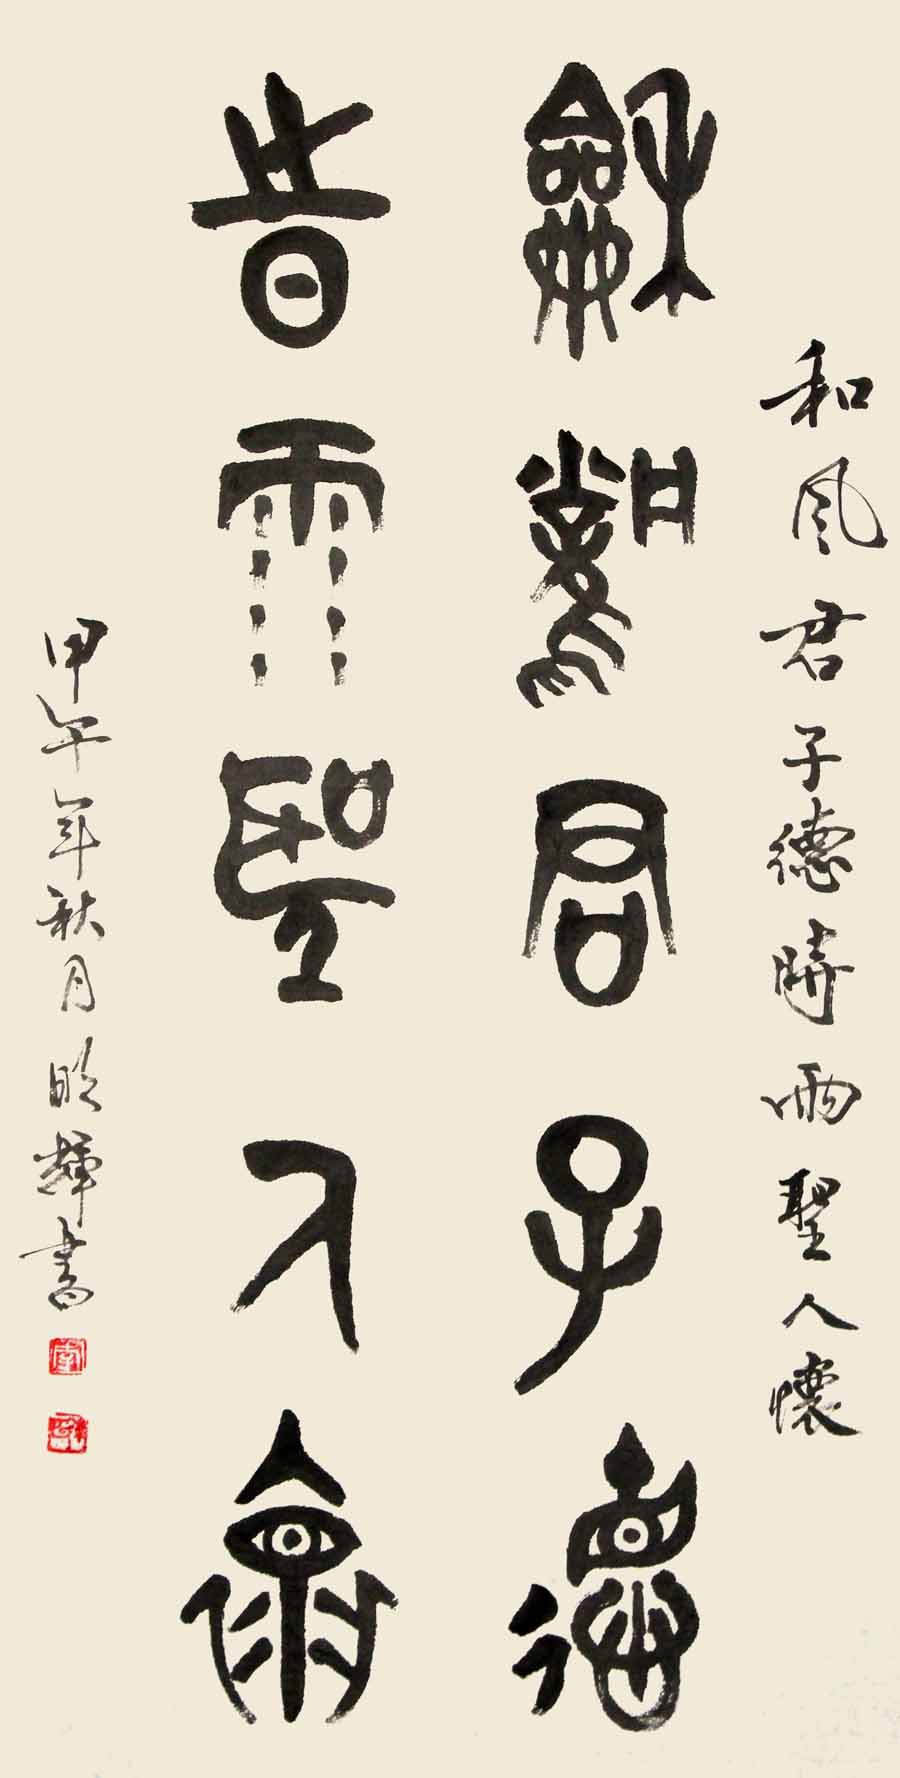 和风君子德時雨聖人懷
龢鳳君子德
旹雨聖人褱
甲午年秋月明輝書